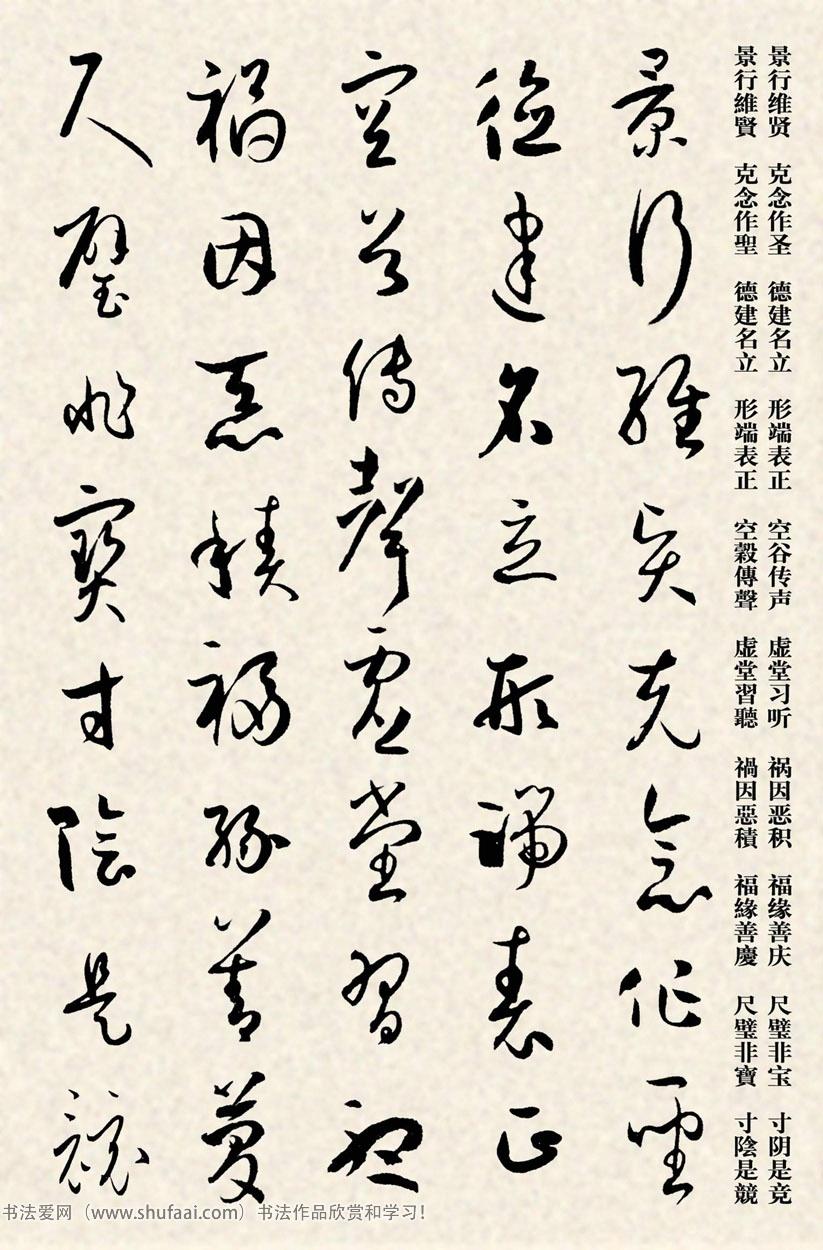 景行维贤 克念作圣 德建名立 形端表正 空谷传声 虚堂习听 祸因恶积 福缘善庆 尺璧非宝 寸阴是竞
景行維賢 克念作聖 德建名立 形端表正 空穀傳聲 虛堂習聽 禍因惡積 福緣善慶 尺璧非寶 寸陰是競
景行維賢克念作聖
德建名立形端表正
空谷傳聲虛堂習聽
禍因惡積福緣善慶
尺璧非寶寸陰是競
书法爱网（www.shufaai.com）书法作品欣赏和学习！